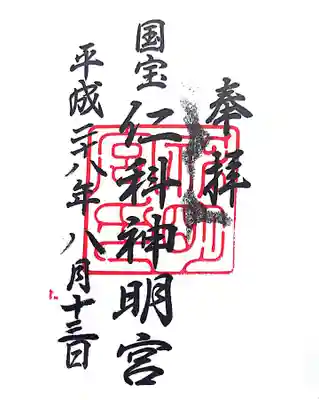 奉拝
国宝
仁科神明宮
平成二十八年八月十三日